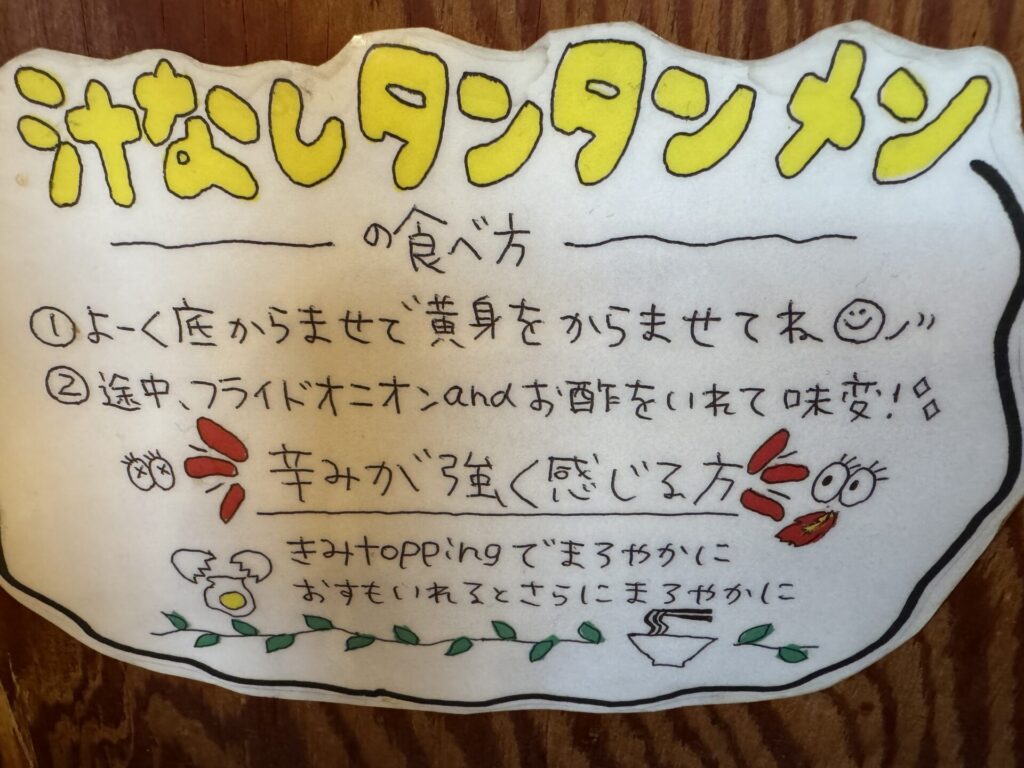 汁なしタンタンメン
の食べ方
①よーく底からませで黄身をからませてね
②途中、フライドオニオンandお酢をいれて味変!
辛みが強く感じる方
きみtoppingでまろやかに
おすもいれるとさらにまろやかに